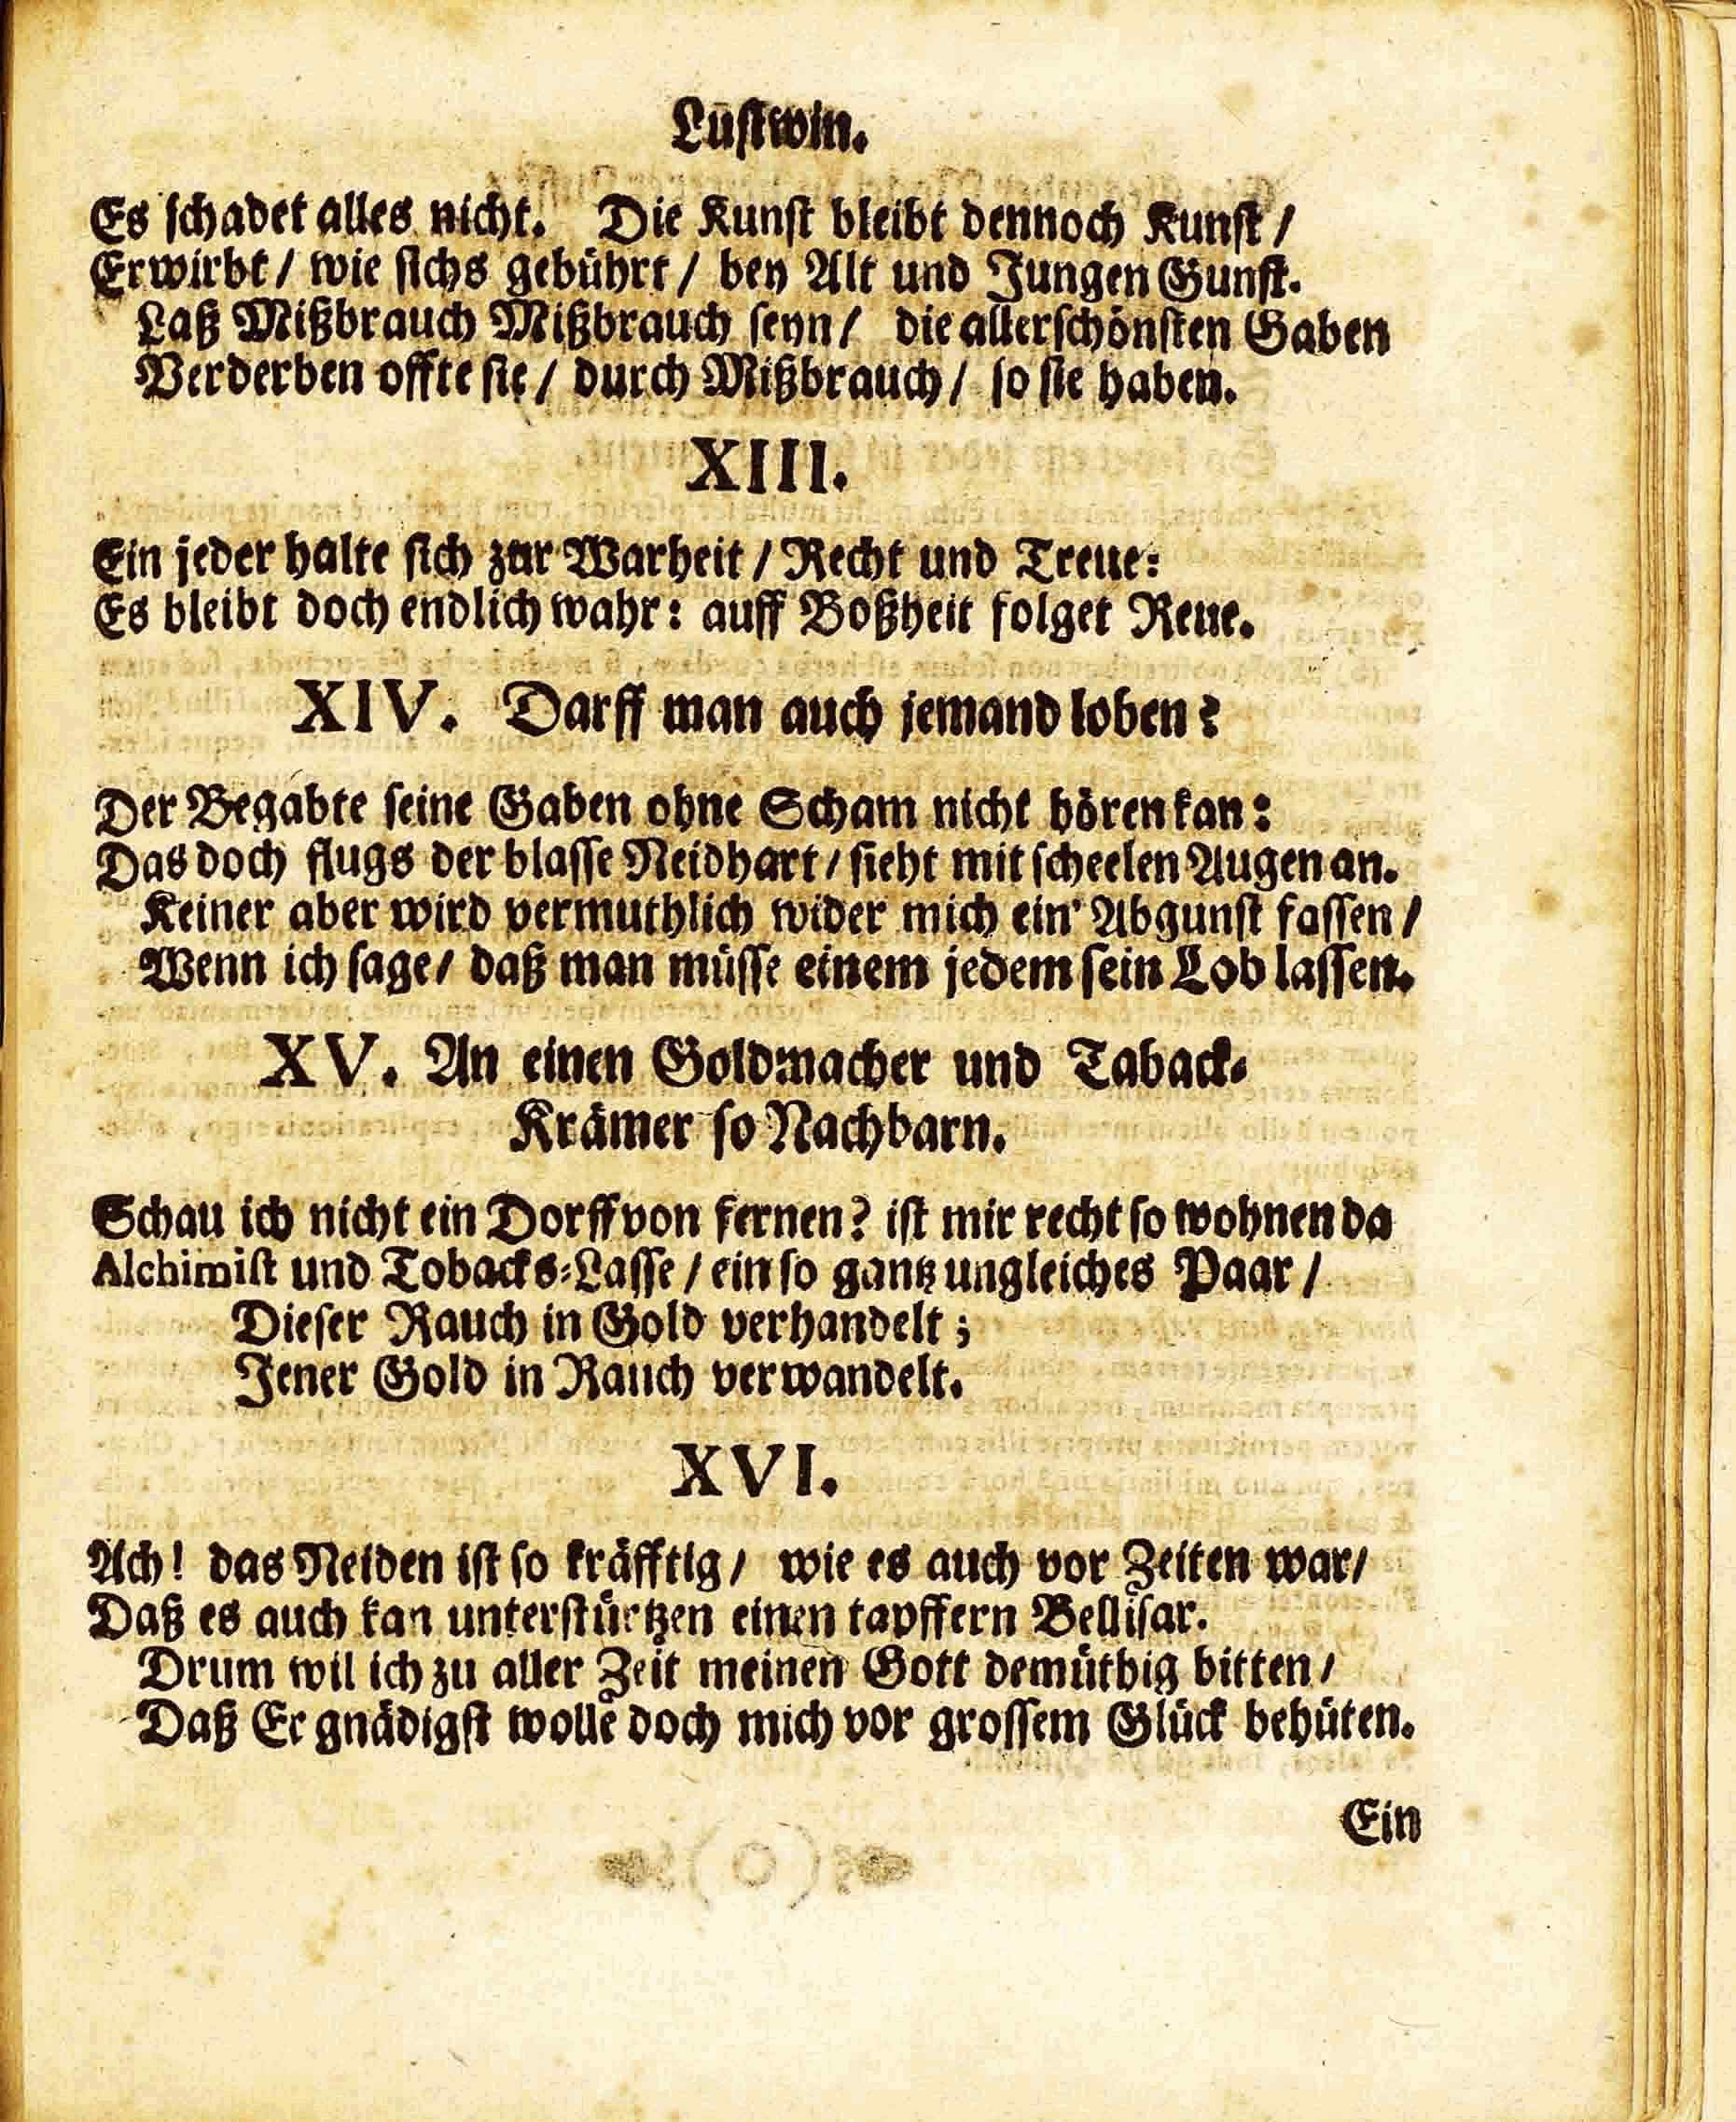 Lustwin.
Es schadet alles nicht. Die Kunst bleibt dennoch Kunst /
Erwirbt / wie sichs gebührt / bey Alt und Jungen Gunst.
Laß Mißbrauch Mißbrauch seyn / die allerschönsten Gaben
Verderben offte sie / durch Mißbrauch / so sie haben.
XIII.
Ein jeder halte sich zur Warheit / Recht und Treue:
Es bleibt doch endlich wahr: auff Boßheit folget Reue.
XIV. Darff man auch jemand loben?
Der Begabte seine Gaben ohne Scham nicht hören kan:
Das doch flugs der blasse Neidhart / sieht mit scheelen Augen an.
Keiner aber wird vermuthlich wider mich ein' Abgunst fassen /
Wenn ich sage / daß man müsse einem jedem sein Lob lassen.
XV. An einen Goldmacher und Taback-
Krämer so Nachbarn.
Schau ich nicht ein Dorff von fernen? ist mir recht so wohnen da
Alchimist und Tobacks-Lasse / ein so gantz ungleiches Paar /
Dieser Rauch in Gold verhandelt;
Jener Gold in Rauch verwandelt.
XVI.
Ach! das Neiden ist so kräfftig / wie es auch vor Zeiten war /
Daß es auch kan unterstürtzen einen tapffern Bellisar.
Drum wil ich zu aller Zeit meinen Gott demüthig bitten /
Daß Er gnädigst wolle doch mich vor grossem Glück behüten.
Ein